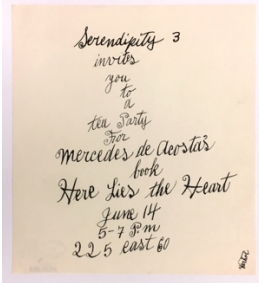 Serendipity 3
invites
you
to
a
tea Party
For
Mercedes de Acosta's
book
Here Lies the Heart
June 14
5-7 P.m
225 east 60